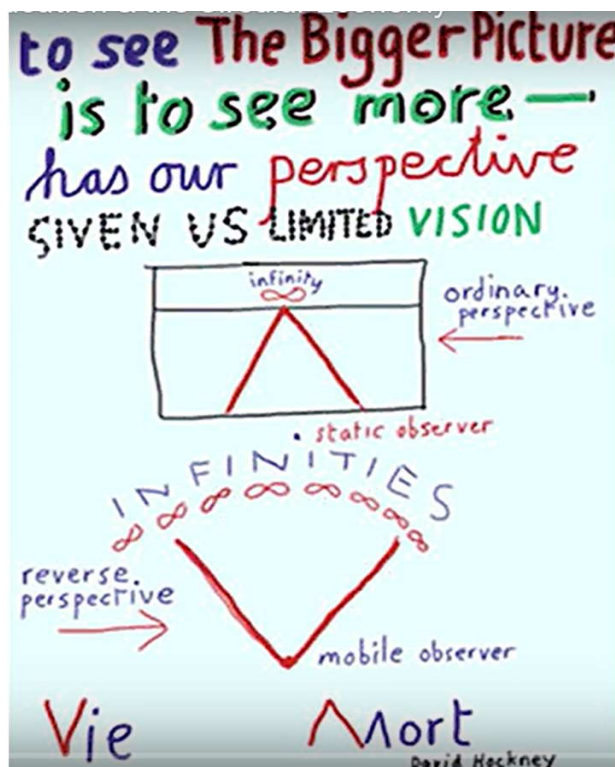 to see The Bigger Picture
is to see more —
has our perspective
GIVEN US LIMITED VISION
infinity
∞
ordinary.
perspective
static observer
INFINITIES
∞ ∞ ∞ ∞ ∞ ∞ ∞ ∞ ∞
reverse.
perspective
mobile observer
Vie Mort
David Hockney